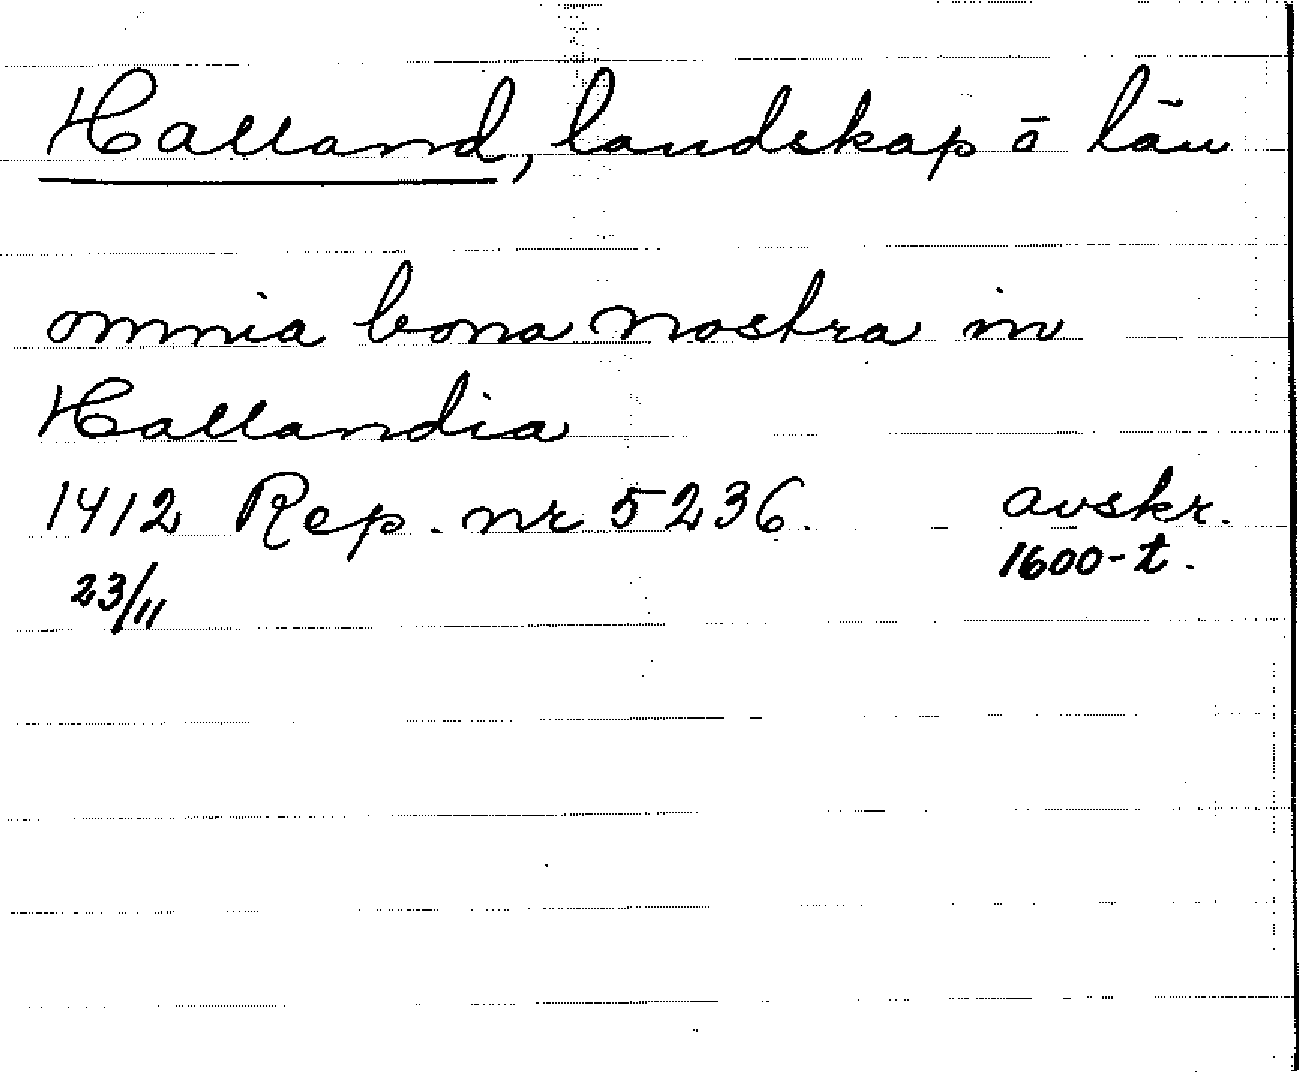 Halland, landskap ō län
omnia bona nostra in
Hallandia
1412 Rep. nr 5236. avskr.
23/11 1600-t.